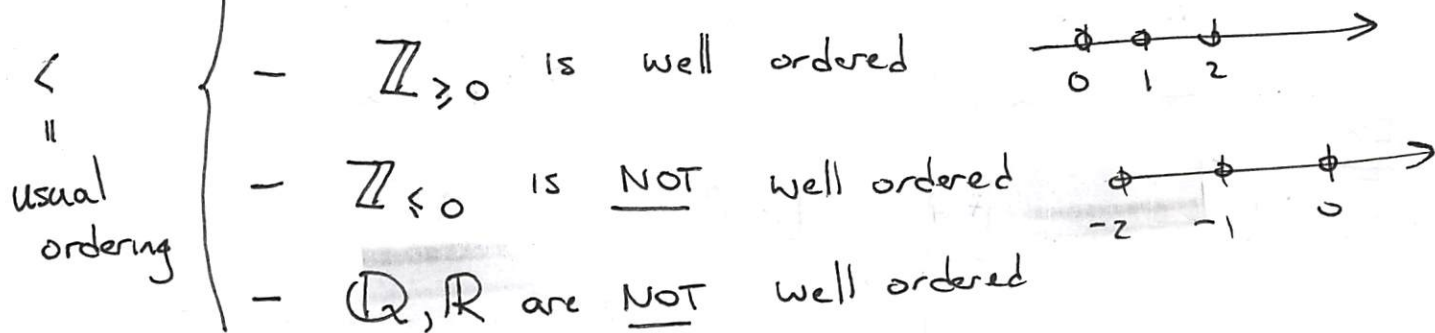 < = usual ordering
- ℤ≥0 is well ordered
0 1 2
- ℤ≤0 is NOT well ordered
-2 -1 0
- ℚ, ℝ are NOT well ordered